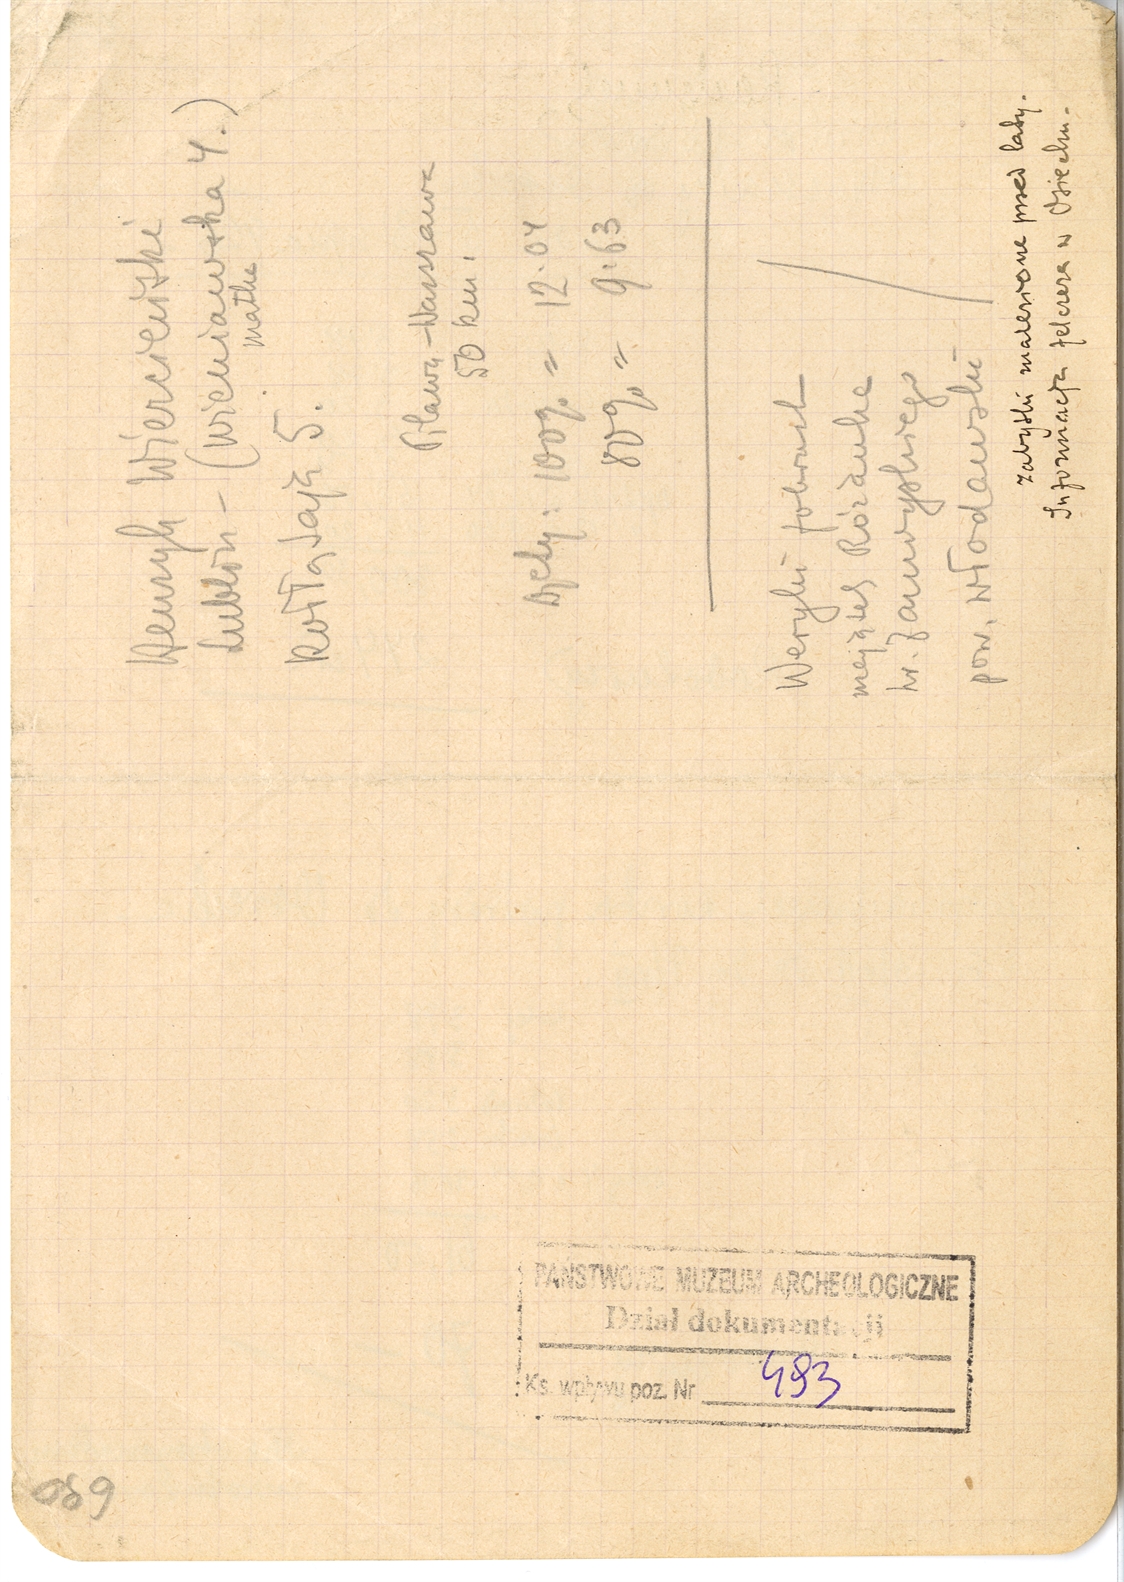 Henryk Wiercieński
Lublin - (Wieniawska 4.)
matka
Kołłątaja 5.
Pilawa - Warszawa
50 km.
100% = 12.04
80% = 9.63
Weryhi folwark
majątek Różanka
hr. Zamoyskiego
pow. Włodawski
Zabytki znalezione przed laty.
Informacja felczera w Osiecku.
PAŃSTWOWE MUZEUM ARCHEOLOGICZNE
Dział dokumentacji
Ks. wpływu poz. Nr 493
680